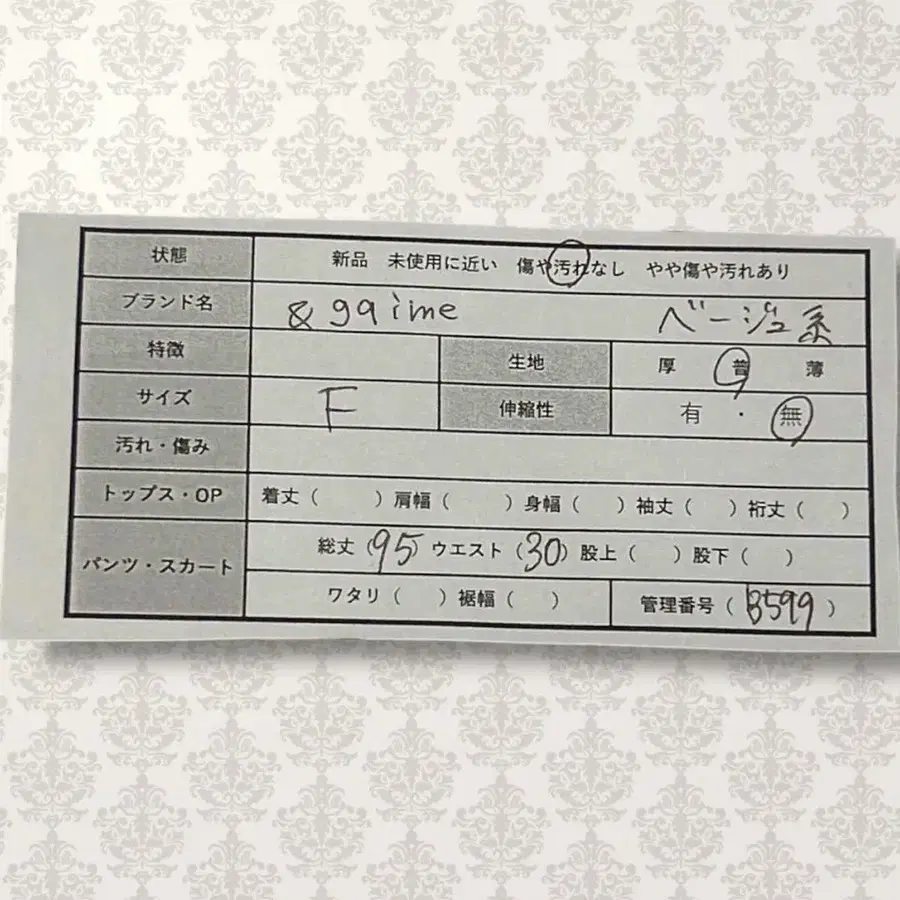 状態 新品 未使用に近い 傷や汚れなし やや傷や汚れあり
ブランド名 & gaime ベージュ系
特徴 生地 厚 普 薄
サイズ F 伸縮性 有 ・ 無
汚れ・傷み
トップス・OP 着丈( ) 肩幅( ) 身幅( ) 袖丈( ) 裄丈( )
パンツ・スカート 総丈(95) ウエスト(30) 股上( ) 股下( )
ワタリ( ) 裾幅( ) 管理番号(B599)